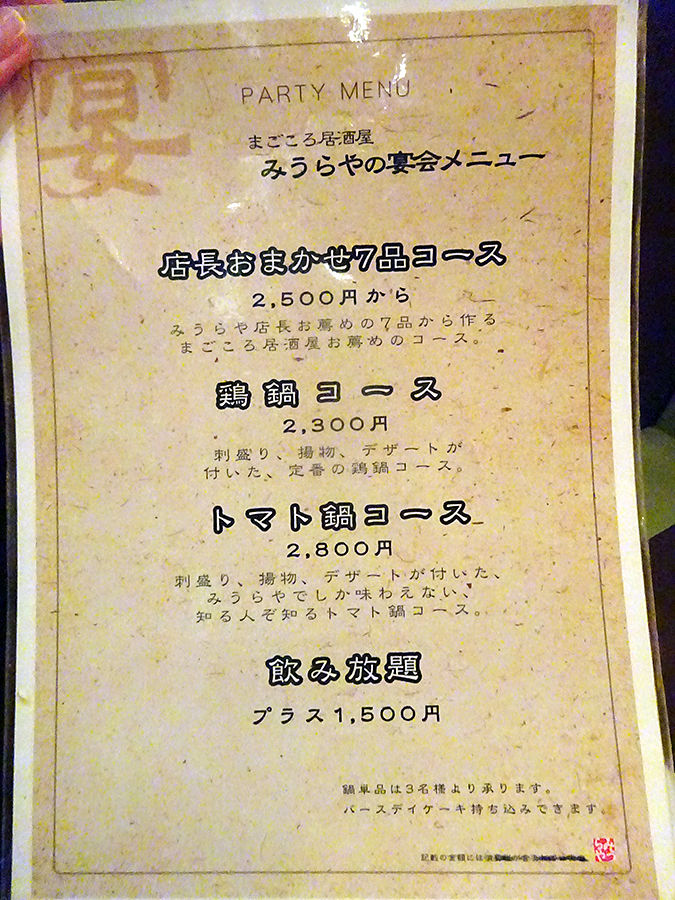 宴
PARTY MENU
まごころ居酒屋
みうらやの宴会メニュー
店長おまかせ7品コース
2,500円から
みうらや店長お薦めの7品から作る
まごころ居酒屋お薦めのコース。
鶏鍋コース
2,300円
刺盛り、揚物、デザートが
付いた、定番の鶏鍋コース。
トマト鍋コース
2,800円
刺盛り、揚物、デザートが付いた、
みうらやでしか味わえない、
知る人ぞ知るトマト鍋コース。
飲み放題
プラス1,500円
鍋単品は3名様より承ります。
バースデイケーキ持ち込みできます。
記載の金額には